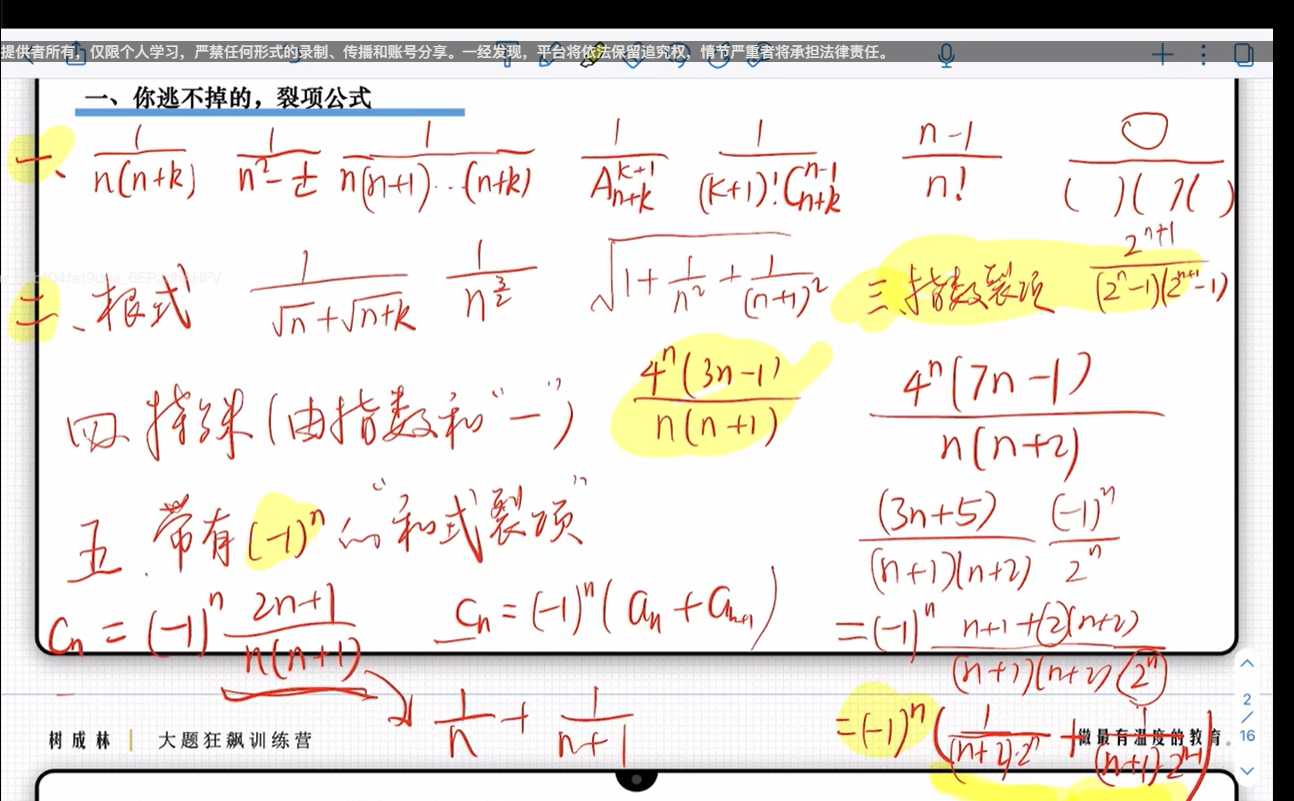 提供者所有，仅限个人学习，严禁任何形式的录制、传播和账号分享。一经发现，平台将依法保留追究权，情节严重者将承担法律责任。
一、你逃不掉的，裂项公式
一、 1/(n(n+k)) 1/(n²-¼) 1/(n(n+1)…(n+k)) 1/A_{n+k}^{k+1} 1/((k+1)!C_{n+k}^{n-1}) (n-1)/n! ○/(( )( )( ))
二、根式 1/(√n+√(n+k)) 1/n^{3/2} √(1+1/n²+1/(n+1)²) 三、指数裂项 2^{n+1}/((2^n-1)(2^{n+1}-1))
四 特殊(由指数和“一”) 4^n(3n-1)/(n(n+1)) 4^n(7n-1)/(n(n+2))
五.带有(-1)^n的“和式裂项” (3n+5)/((n+1)(n+2)) (-1)^n/2^n
C_n=(-1)^n (2n+1)/(n(n+1)) C_n=(-1)^n(a_n+a_{n+1}) =(-1)^n (n+1+(2)(n+2))/((n+1)(n+2)(2^n))
1/n+1/(n+1) =(-1)^n(1/((n+2)·2^n)+1/((n+1)·2^{n-1}))
树成林 | 大题狂飙训练营 做最有温度的教育。
2/16